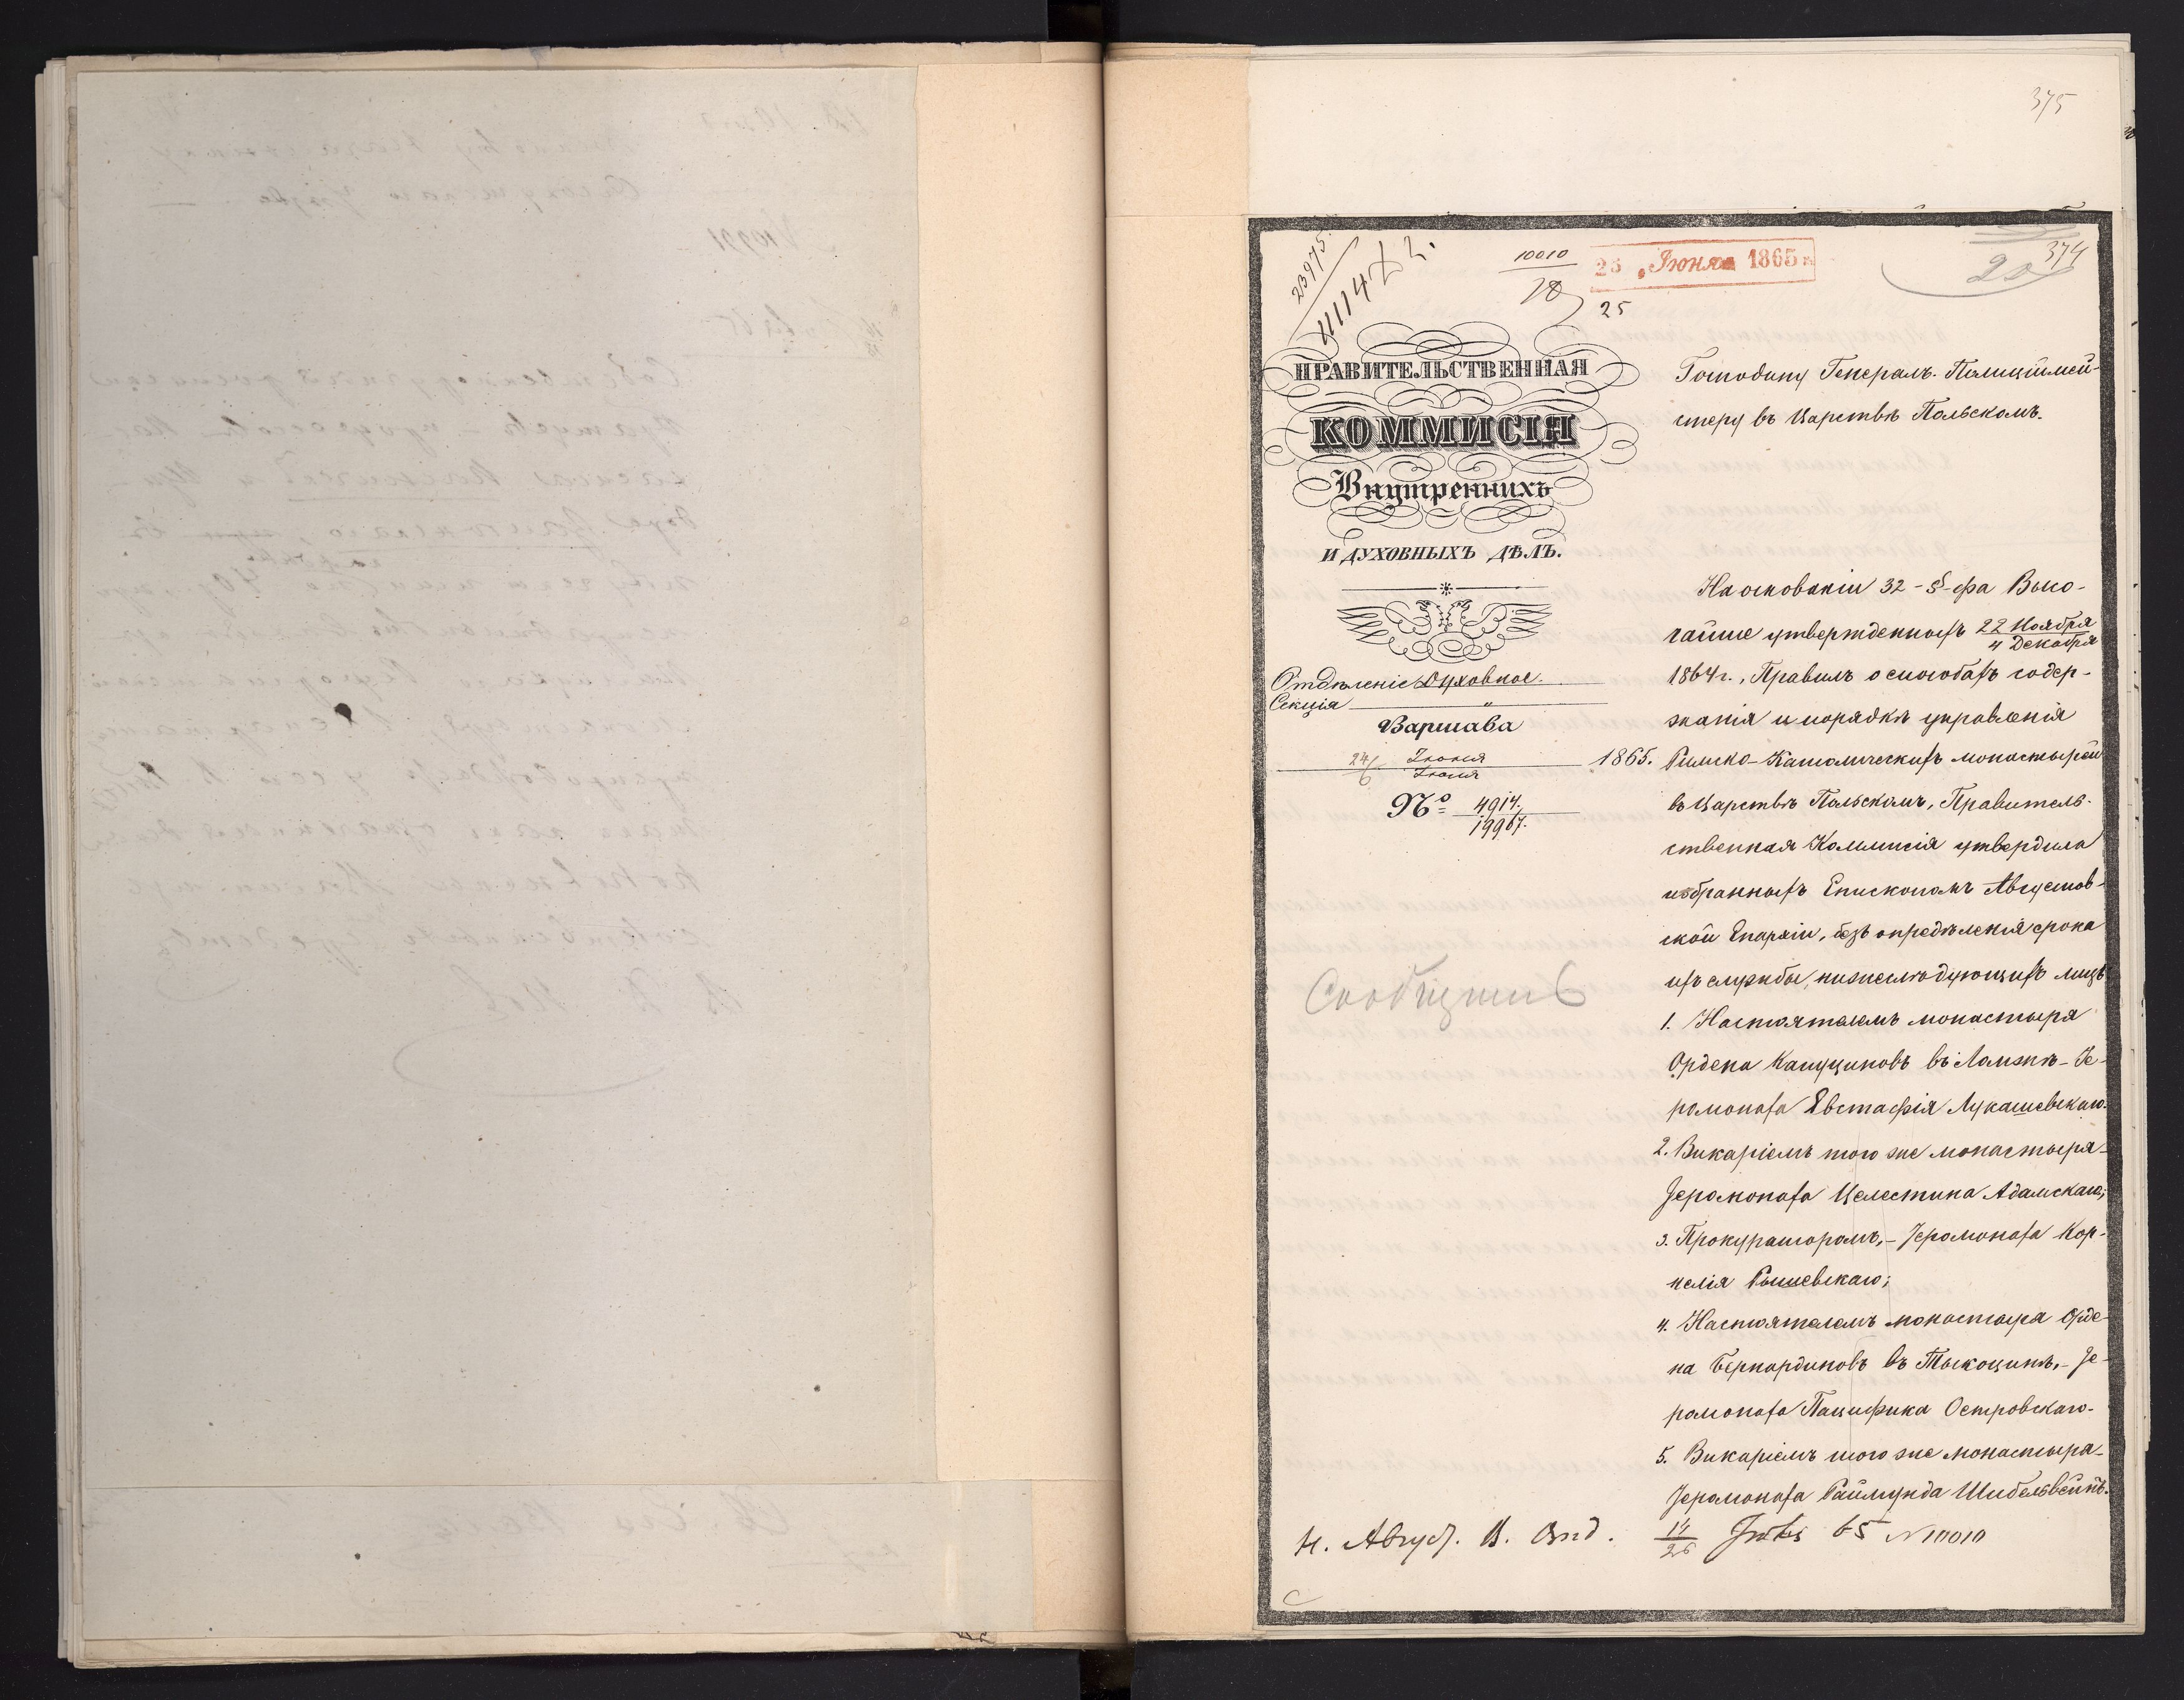 375
374
20
23975.
10010
25
25 Іюня 1865 г.
ПРАВИТЕЛЬСТВЕННАЯ
КОММИСІЯ
Внутреннихъ
И ДУХОВНЫХЪ ДѢЛЪ.
Отдѣленіе Духовное.
Секція "
Варшава
24/6 Іюня/Іюля 1865.
№ 4914./19967.
Сообщить
Господину Генералъ-Полиціймей-
стеру въ Царствѣ Польскомъ.
На основаніи 32-§-фа Высо-
чайше утвержденныхъ 22 Ноября/4 Декабря
1864 г., Правилъ о способахъ содер-
жанія и порядкѣ управленія
Римско-Католическихъ монастырей
въ Царствѣ Польскомъ, Правитель-
ственная Коммисія утвердила
избранныхъ Епископомъ Августов-
ской Епархіи, безъ опредѣленія срока
ихъ службы, нижеслѣдующихъ лицъ
1. Настоятелемъ монастыря
Ордена Капуциновъ въ Ломжѣ-Іе-
ромонаха Евстафія Лукашевскаго.
2. Викаріемъ того же монастыря-
Іеромонаха Целестина Адамскаго;
3. Прокураторомъ,- Іеромонаха Кор-
нелія Рышевскаго;
4. Настоятелемъ монастыря Орде-
на Бернардиновъ въ Тыкоцинѣ,- Іе-
ромонаха Пацифика Островскаго-
5. Викаріемъ того же монастыря-
Іеромонаха Раймунда Шибельвейнъ.
Н. Август. В. Отд. 14/26 65 N 10010